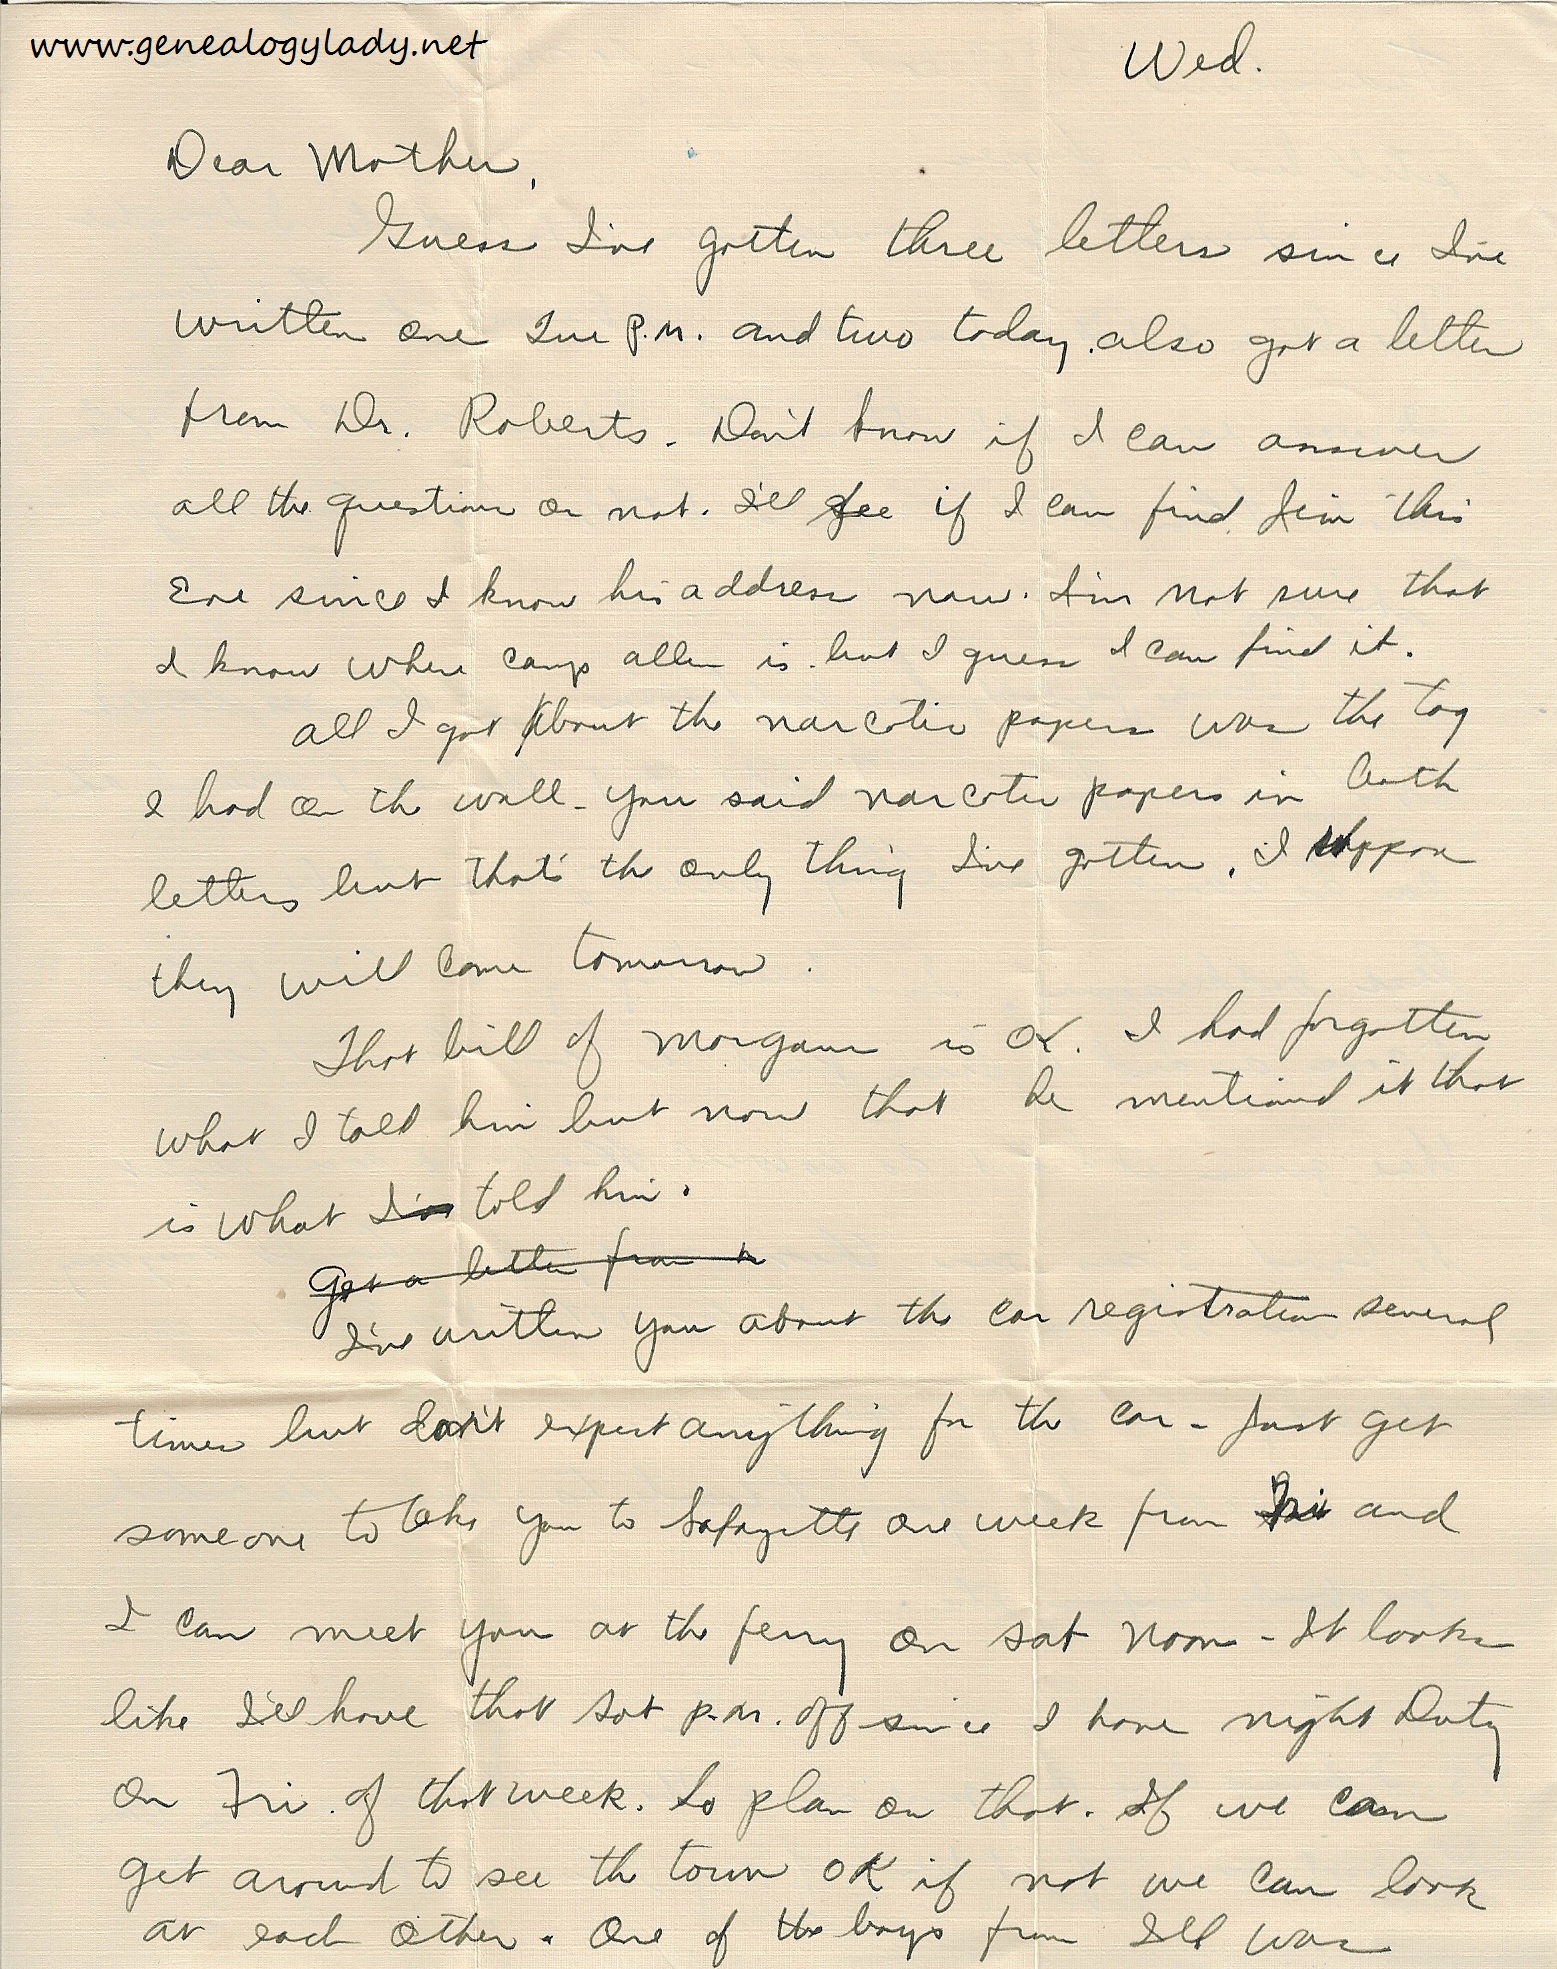 www.genealogylady.net
Wed.
Dear Mother,
Guess I've gotten three letters since I've
written one Tue P.M. and two today. also got a letter
from Dr. Roberts. Don't know if I can answer
all the question or not. I'll see if I can find Jim this
Eve since I know his address now. I'm not sure that
I know where camp allen is but I guess I can find it.
all I got about the narcotic papers was the tag
I had on the wall - you said narcotic papers in both
letters but that's the only thing I've gotten. I suppose
they will come tomorrow.
That bill of Morgans is OK. I had forgotten
what I told him but now that he mentioned it that
is what I've told him.
Got a letter from
I've written you about the car registration several
times but don't expect anything for the car - Just get
someone to take you to Lafayette one week from Fri and
I can meet you at the ferry on sat noon - It looks
like I'll have that Sat p.m. off since I have night Duty
on Fri. of that week. So plan on that. If we can
get around to see the town OK if not we can look
at each other. One of the boys from Ill was